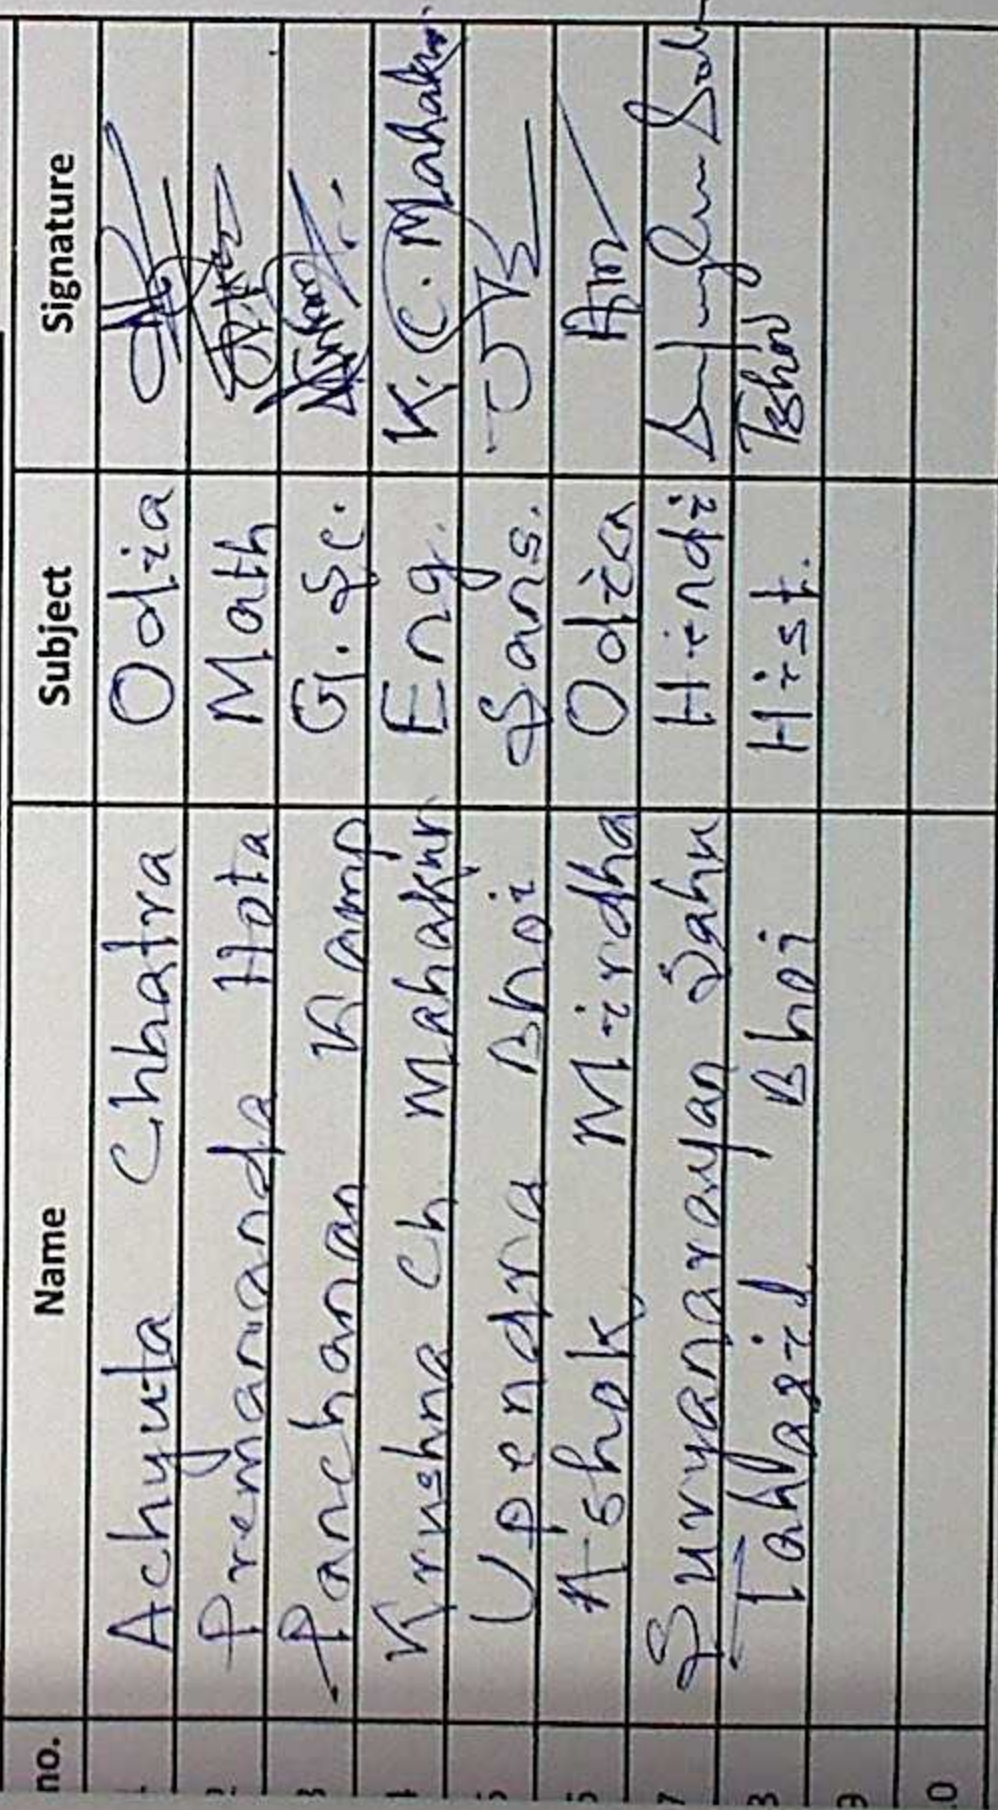 no. Name Subject Signature
1 Achyuta Chhatra Odia
2 Premananda Hota Math
3 Panchanan Kamp G. Sc.
4 Krushna Ch Mahakur Eng. K. C. Mahakur
5 Upendra Bhoi Sans.
6 Ashok Mirdha Odia
7 Suryanarayan Sahu Hindi
8 Bhoi Hist.
9
10